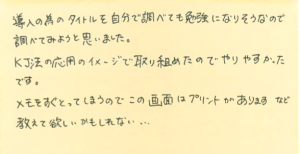 導入の為のタイトルを自分で調べても勉強になりそうなので
調べてみようと思いました。
KJ法の応用のイメージで取り組めたのでやりやすかった
です。
メモをすぐとってしまうのでこの画面はプリントがあります など
教えて欲しいかもしれない…